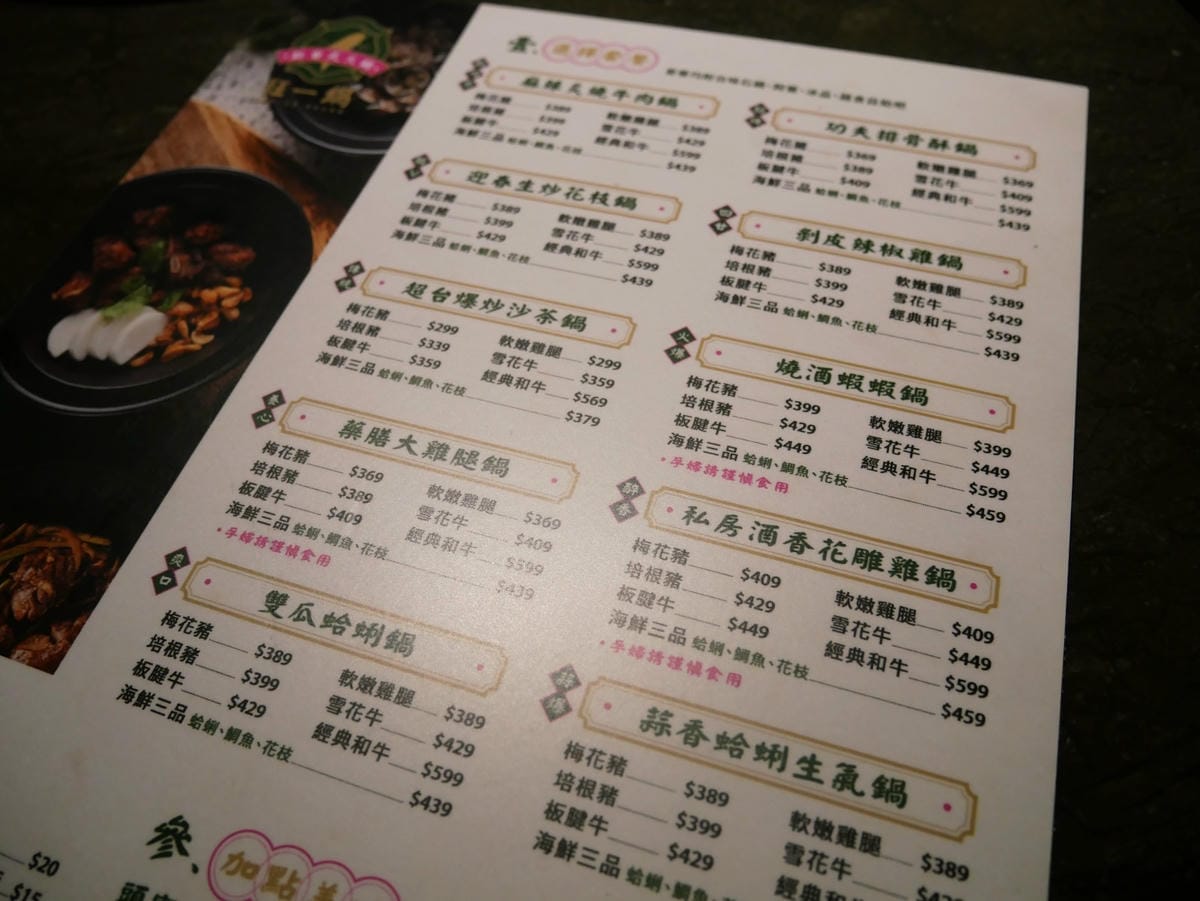 壹、選擇套餐
旺一鍋
麻辣炙燒牛肉鍋
梅花豬 $389
培根豬 $399
板腱牛 $429
海鮮三品 蛤蜊、鯛魚、花枝 $439
軟嫩雞腿 $389
雪花牛 $429
經典和牛 $599
迎春生炒花枝鍋
梅花豬 $389
培根豬 $399
板腱牛 $429
海鮮三品 蛤蜊、鯛魚、花枝 $439
軟嫩雞腿 $389
雪花牛 $429
經典和牛 $599
超台爆炒沙茶鍋
梅花豬 $299
培根豬 $339
板腱牛 $359
海鮮三品 蛤蜊、鯛魚、花枝 $379
軟嫩雞腿 $299
雪花牛 $359
經典和牛 $569
養心
藥膳大雞腿鍋
梅花豬 $369
培根豬 $389
板腱牛 $409
海鮮三品 蛤蜊、鯛魚、花枝 $439
•孕婦請謹慎食用
軟嫩雞腿 $369
雪花牛 $409
經典和牛 $599
爽口
雙瓜蛤蜊鍋
梅花豬 $389
培根豬 $399
板腱牛 $429
海鮮三品 蛤蜊、鯛魚、花枝 $439
軟嫩雞腿 $389
雪花牛 $429
經典和牛 $599
功夫排骨酥鍋
梅花豬 $369
培根豬 $389
板腱牛 $409
海鮮三品 蛤蜊、鯛魚、花枝 $439
軟嫩雞腿 $369
雪花牛 $409
經典和牛 $599
剝皮辣椒雞鍋
梅花豬 $389
培根豬 $399
板腱牛 $429
海鮮三品 蛤蜊、鯛魚、花枝 $439
軟嫩雞腿 $389
雪花牛 $429
經典和牛 $599
火爆
燒酒蝦蝦鍋
梅花豬 $399
培根豬 $429
板腱牛 $449
海鮮三品 蛤蜊、鯛魚、花枝 $459
•孕婦請謹慎食用
軟嫩雞腿 $399
雪花牛 $449
經典和牛 $599
醉香
私房酒香花雕雞鍋
梅花豬 $409
培根豬 $429
板腱牛 $449
海鮮三品 蛤蜊、鯛魚、花枝 $459
•孕婦請謹慎食用
軟嫩雞腿 $409
雪花牛 $449
經典和牛 $599
蒜爆
蒜香蛤蜊生氣鍋
梅花豬 $389
培根豬 $399
板腱牛 $429
海鮮三品 蛤蜊、鯛魚、花枝
軟嫩雞腿 $389
雪花牛 $429
經典和牛
參、加點
$20
$15